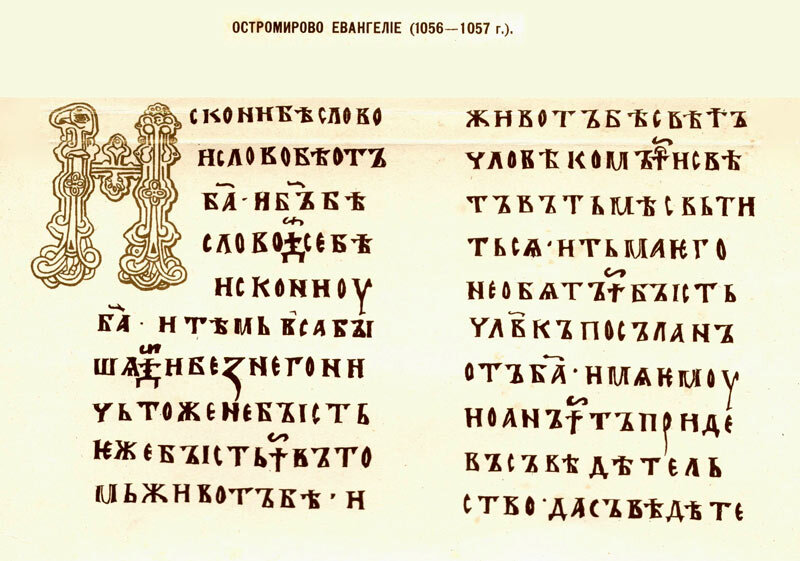 ОСТРОМИРОВО ЕВАНГЕЛІЕ (1056—1057 г.).
Искони бѣ слово
и слово бѣ отъ
б҃а · и б҃ъ бѣ
слово · се бѣ
искони оу
б҃а · и тѣмь в҄са бꙑ
шѧ · и без него ни
чьтоже не бꙑсть
ѥже бꙑсть · въ то
мь животъ бѣ · и
животъ бѣ свѣтъ
чловѣкомъ · и свѣ
тъ въ тьмѣ свьти
ться · и тьма ѥго
не обѧтъ · бꙑсть
чл҃вкъ посъланъ
отъ б҃а · имѧ ѥмоу
иоанъ · тъ приде
въ съвѣдѣтель
ство · да съвѣдѣте